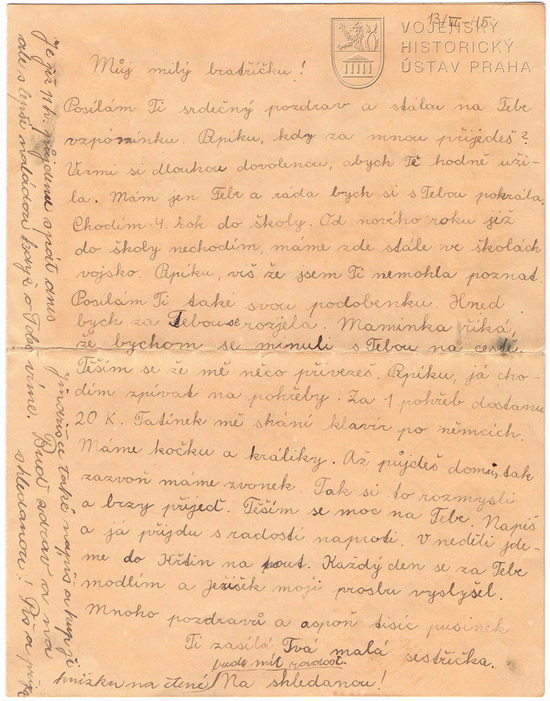 13/VI-45
VOJENSKÝ
HISTORICKÝ
ÚSTAV PRAHA
Můj milý bratříčku!
Posílám Ti srdečný pozdrav a stálou na Tebe
vzpomínku. Pepíku, kdy za mnou přijedeš?
Vezmi si dlouhou dovolenou, abych Tě hodně uži-
la. Mám jen Tebe a ráda bych si s Tebou pohrála.
Chodím 4. rok do školy. Od nového roku již
do školy nechodím, máme zde stále ve školách
vojsko. Pepíku, viš že jsem Ti nemohla poznat.
Posílám Ti také svou podobenku. Hned
bych za Tebou se rozjela. Maminka říká,
že bychom se minuli s Tebou na cestě.
Těším se že mě něco přivezeš. Pepíku, já cho-
dím zpívat na pohřeby. Za 1 pohřeb dostanu
20 K. Tatínek mě shání klavír po němcích.
Máme kočku a králíky. Až půjdeš domů, tak
zazvoň máme zvonek. Tak si to rozmysli
a brzy přijeď. Těším se moc na Tebe. Napiš
a já přijdu s radostí naproti. V neděli jde-
me do Křtin na pout. Každý den se za Tebe
modlím a Ježíšek moji prosbu vyslyšel.
Mnoho pozdravů a aspoň tisíc pusinek
Ti zasílá Tvá malá sestřička.
bude mít radost.
knížku na čtení Na shledanou!
Je již 11 h. půjdeme spát dnes
ale s lepší náladou když o Tobě víme. Buď zdráv a na
shledanou! Piš a přijeď
také napiš a kup jí